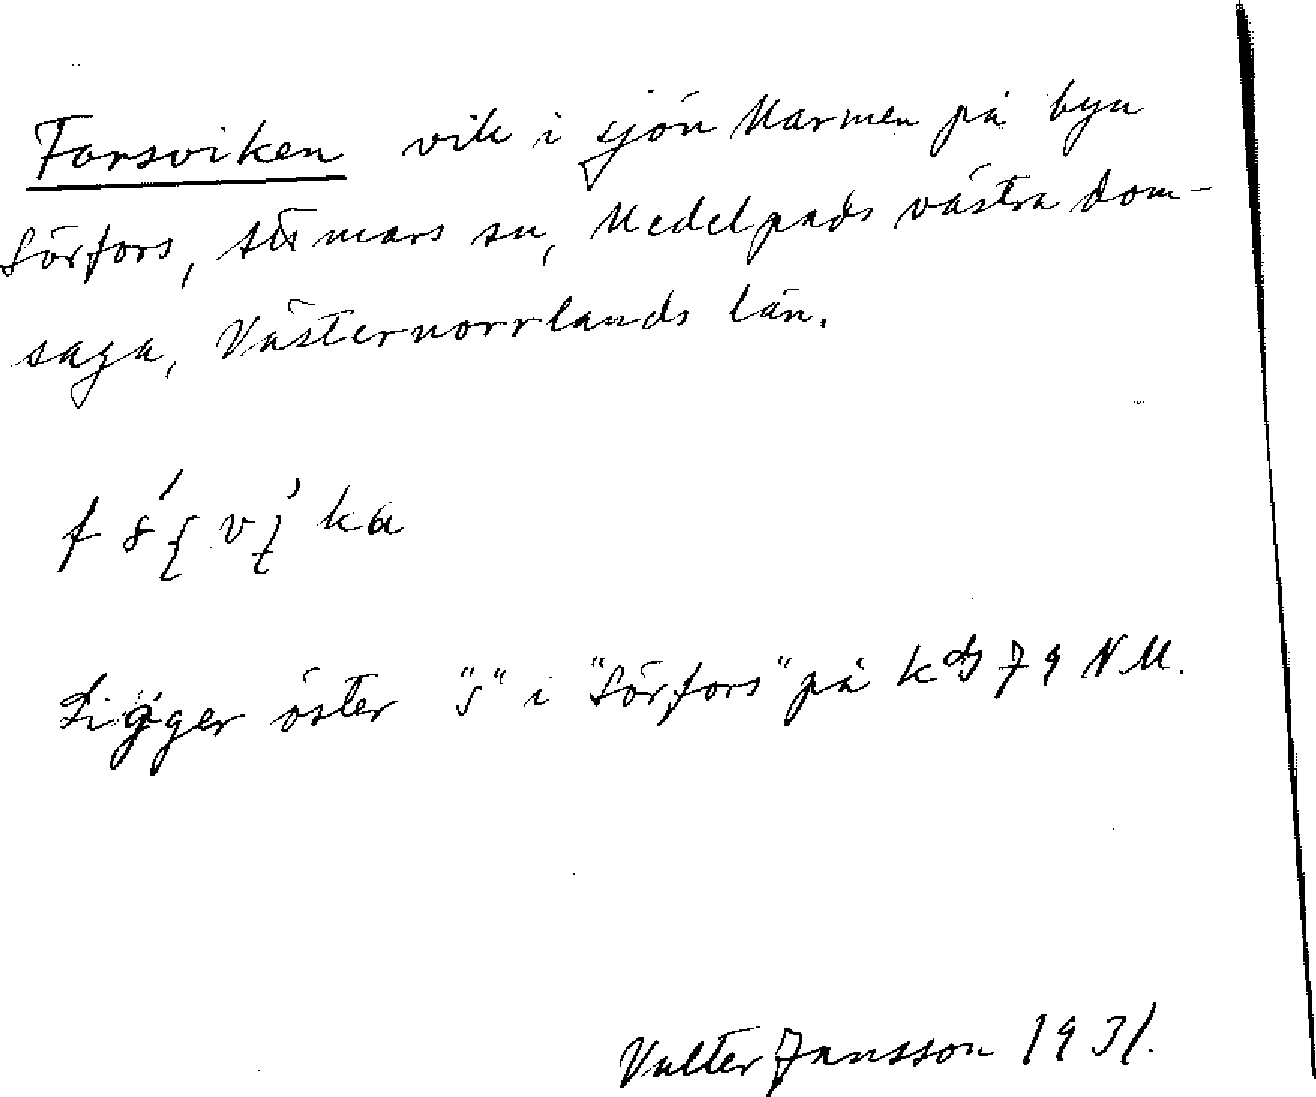 Forsviken vik i sjön Marmen på byn
Sörfors, Attmars sn, Medelpads västra dom-
saga, Västernorrlands län.
Ligger öster "s" i "Sörfors" på kbl 79 NM.
Valter Jansson 1931.